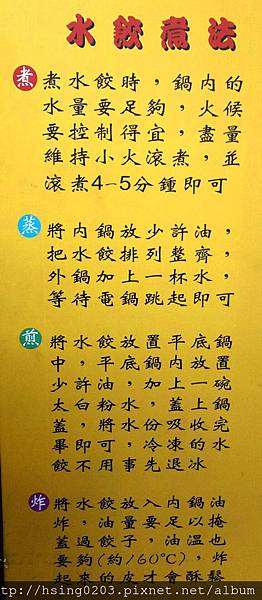 水餃煮法
煮 煮水餃時，鍋內的
水量要足夠，火候
要控制得宜，盡量
維持小火滾煮，並
滾煮4-5分鍾即可
蒸 將內鍋放少許油，
把水餃排列整齊，
外鍋加上一杯水，
等待電鍋跳起即可
煎 將水餃放置平底鍋
中，平底鍋內放置
少許油，加上一碗
太白粉水，蓋上鍋
蓋，將水份吸收完
畢即可，冷凍的水
餃不用事先退冰
炸 將水餃放入內鍋油
炸，油量要足以掩
蓋過餃子，油溫也
要夠(約160℃)，炸
起來的皮才會酥鬆
http://hsing0203.pixnet.net/album